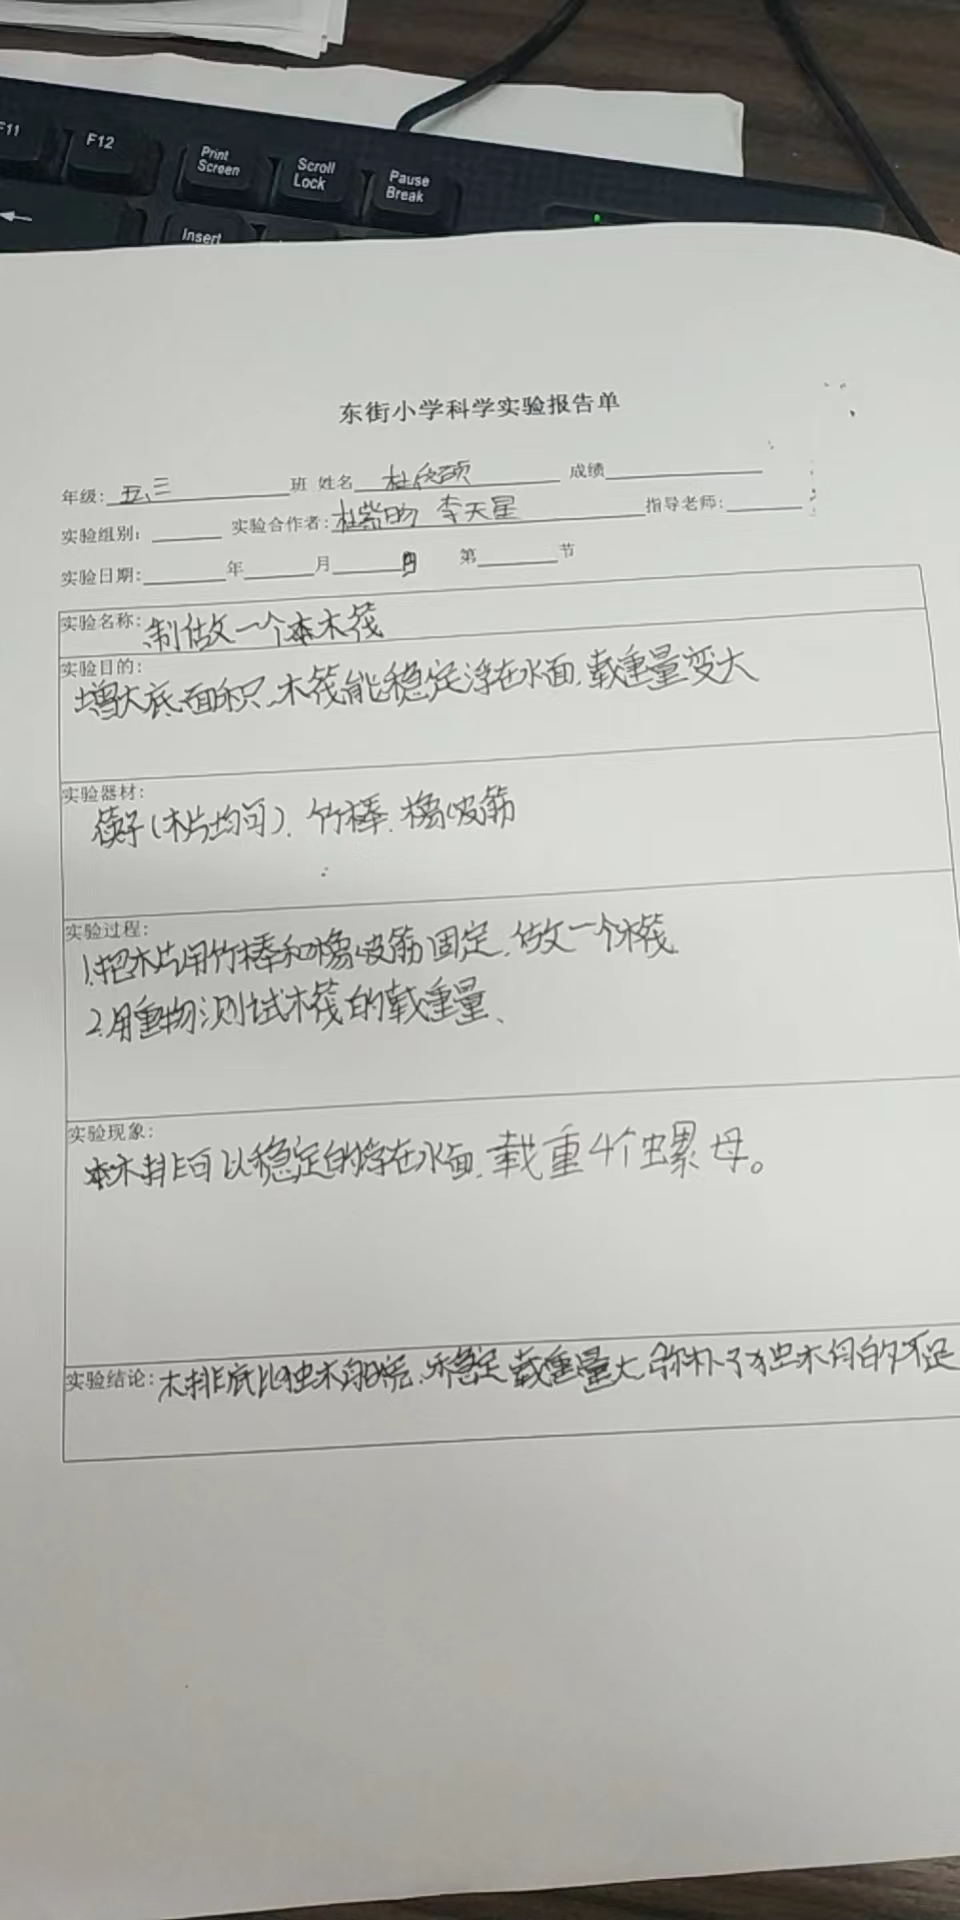 F11
F12
Print Screen
Scroll Lock
Pause Break
Insert
东街小学科学实验报告单
年级: 五、三 班 姓名 杜 成绩
实验组别: 实验合作者: 杜 李天星 指导老师:
实验日期: 年 月 日 第 节
实验名称: 制做一个木筏
实验目的:
增大底面积,木筏能稳定浮在水面,载重量变大
实验器材:
筷子(木片均可)、竹棒、橡皮筋
实验过程:
1.把木片用竹棒和橡皮筋固定,做一个木筏
2.用重物测试木筏的载重量、
实验现象:
木排可以稳定的浮在水面,载重4个螺母。
实验结论: 木排底比独木舟 稳定 载重量大 弥补了独木舟的不足